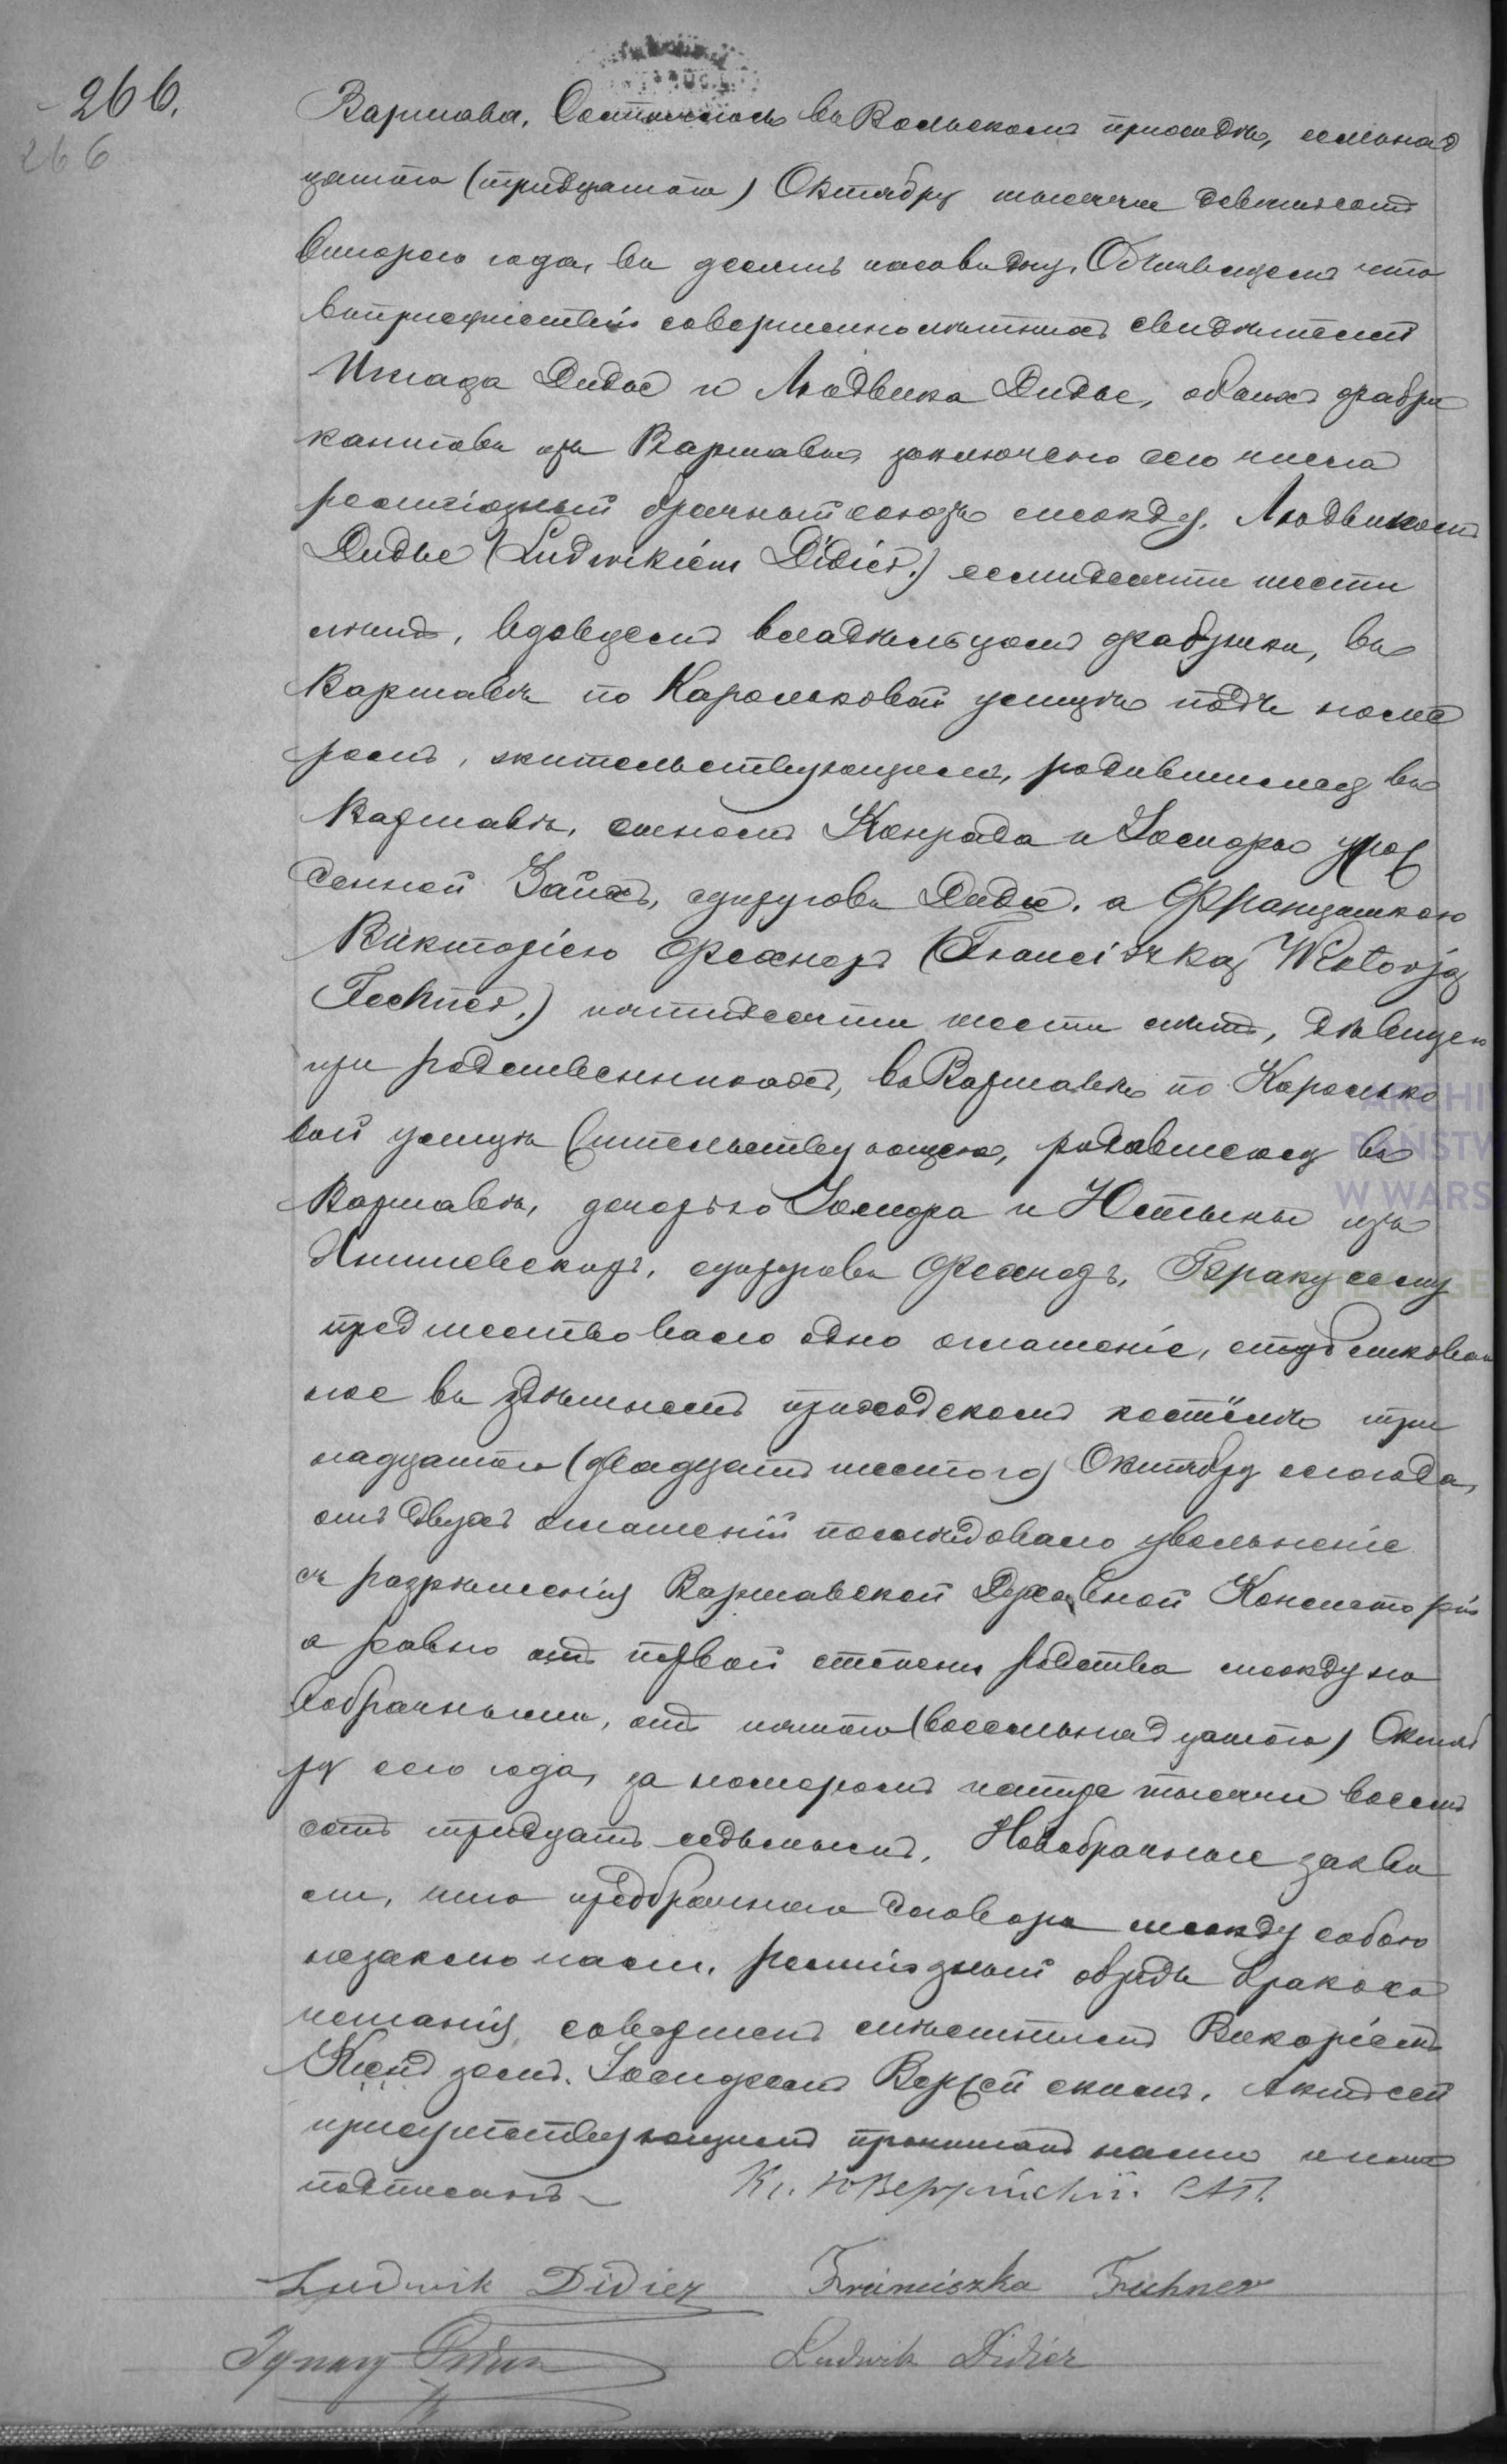 266.
266
Варшава. Состоялось въ Вольскомъ приходѣ, семнад
цатого (тридцатого) Октября тысяча девятьсотъ
второго года, въ десять часовъ дня. Объявляемъ что
въ присутствіи совершеннолѣтнихъ свидѣтелей
Игнаца Дидье и Людвика Дидье, обоихъ фабри
кантовъ изъ Варшавы, заключено сего числа
религіозный брачный союзъ между, Людвикомъ
Дидье (Ludwikiem Didier.) семидесяти шести
лѣтъ, вдовцемъ владѣльцомъ фабрики, въ
Варшавѣ по Карольковой улицѣ подъ номе
ромъ, жительствующимъ, родившимся въ
Варшавѣ, сыномъ Конрада и Іосифы урож
денной Зайхъ, супруговъ Дидье. а Францишкою
Викторіею Фехнеръ (Franciszką Wiktorją
Fechner.) пятидесяти шести лѣтъ, дѣвицею
при родственникахъ, въ Варшавѣ по Каролько
вой улицѣ жительствующею, родившеюся въ
Варшавѣ, дочерью Іосифа и Юстыны изъ
супруговъ Фехнеръ. Браку сему
предшествовало одно оглашеніе, опубликован
ное въ здѣшнемъ приходскомъ костёлѣ три
надцатого (двадцать шестого) Октября сего года,
отъ двухъ оглашеній послѣдовало увольненіе
съ разрѣшенія Варшавской Духовной Консисторіи
а равно отъ первой степени родства между но
вобрачными, отъ пятого (восемнадцатого) Октяб
ря сего года, за номеромъ четыре тысячи восемь
сотъ тридцать седьмымъ. Новобрачные заяви
ли, что предбрачного договора между собою
незаключали. религіозный обрядъ бракосо
четанія совершенъ мѣстнымъ Викаріемъ
Ксендзомъ. Іосифомъ Вержейскимъ. Актъ сей
присутствующимъ прочитанъ нами и ими
подписанъ –
Ludwik Didier Franciszka Fechner
Ignacy Didier Ludwik Didier
ARCHIW
PAŃSTW
W WARS